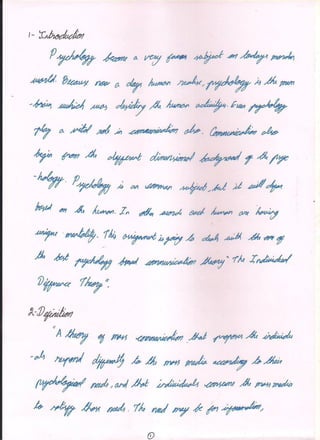 1- Introduction
Psychology become a very famous subject on todays morden
world. Because now a days human realise, psychology is the main
-brain, which was deciding the human activitys. Even psychology
play a vital role in communication also. Communication also
begin from the different dimensional background of the psyc
-hology. Psychology is an common subject, but it will depen
based on the human. In other words each human are having
unique mentality. This assignment is going to deals with the one of
the best psychology based communication theory "The Individual
Difference Theory".
2. Definition
"A theory of mass communication that proposes the individu
-als respond differently to the mass media according to their
psychological needs, and that individuals consume the mass media
to satisfy those needs. The need may be for information,
1